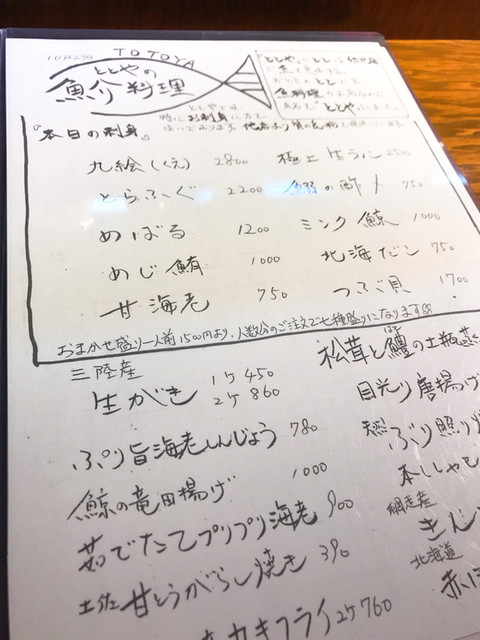 10月23日
TOTOYA
ととやの
魚介料理
『本日の刺身』
九絵(くえ) 2800
とらふぐ 2200
めばる 1200
めじ鮪 1000
甘海老 750
極上生うに 2500
の酢〆 750
ミンク鯨 1000
北海だこ 750
つぶ貝 1700
おまかせ盛り一人前1500円より、人数分のご注文で七種盛りになります
三陸産
生がき 1ケ 450
2ケ 860
ぷり旨海老しんじょう 780
鯨の竜田揚げ 1000
茹でたてプリプリ海老 900
土佐 甘とうがらし焼き 390
カキフライ 2ケ 760
松茸と鱧の土瓶蒸
目光り唐揚げ
天然 ぶり照り
本ししゃも
網走産
きん
北海道
赤